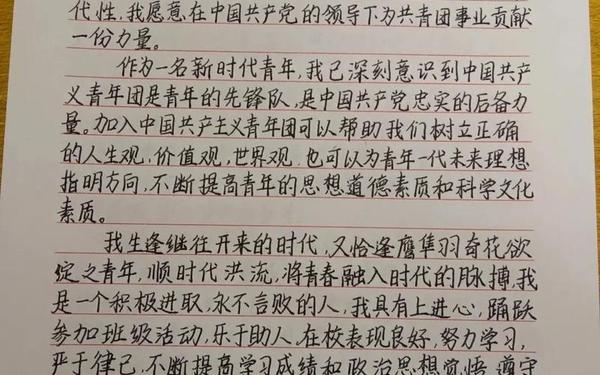 代性,我愿意在中国共产党的领导下为共青团事业贡献
一份力量。
作为一名新时代青年,我已深刻意识到中国共产
义青年团是青年的先锋队,是中国共产党忠实的后备力
量。加入中国共产主义青年团可以帮助我们树立正确
的人生观,价值观,世界观,也可以为青年一代未来理想
指明方向,不断提高青年的思想道德素质和科学文化
素质。
我生逢继往开来的时代,又恰逢鹰隼羽奇花欲
绽之青年,顺时代洪流,将青春融入时代的脉搏,我
是一个积极进取,永不言败的人,我具有上进心,踊跃
参加班级活动,乐于助人,在校表现良好,努力学习,
严于律己,不断提高学习成绩和政治思想觉悟,遵守